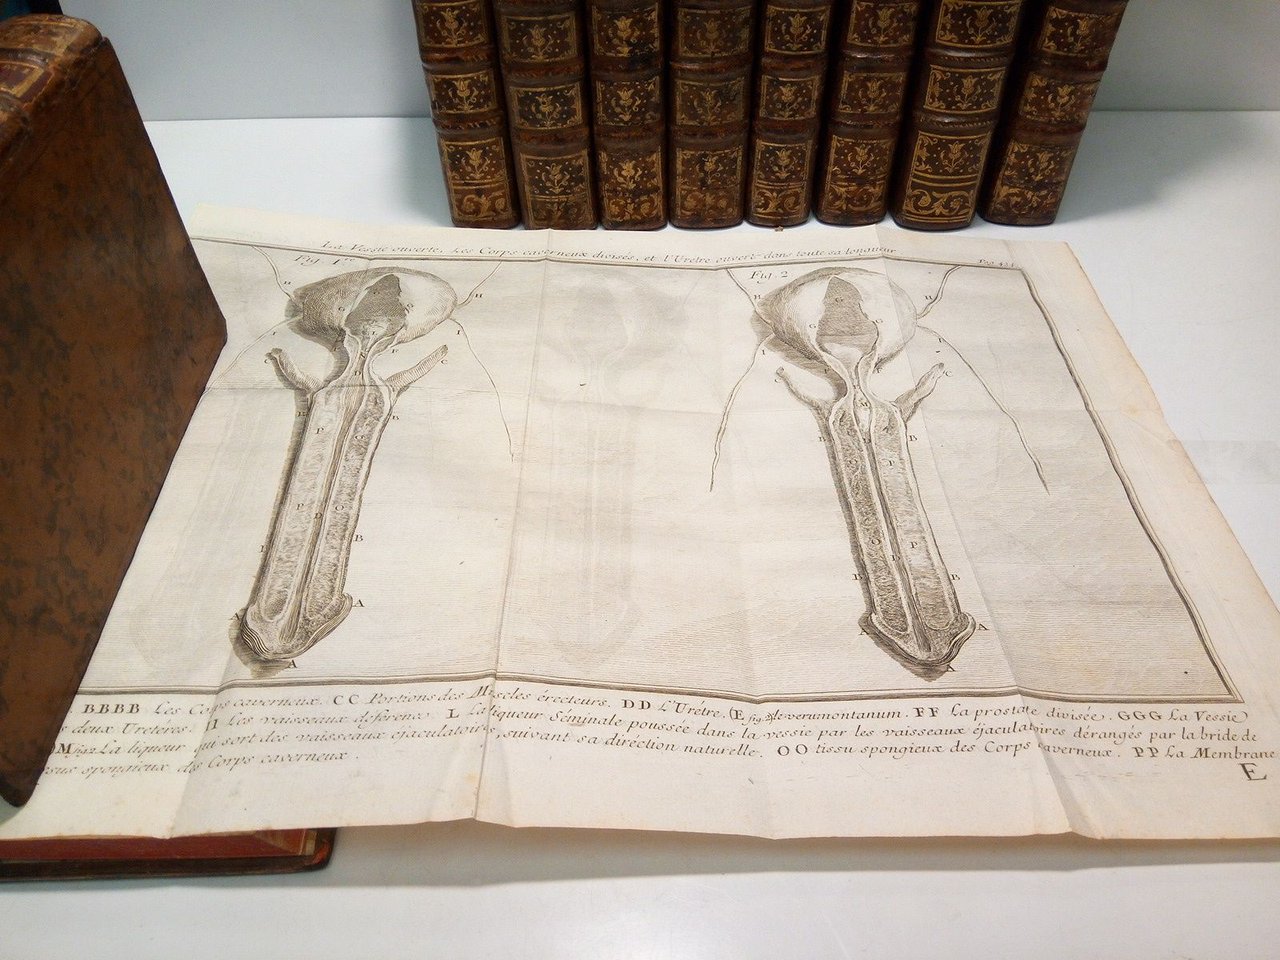 La Vessie ouverte, Les Corps caverneux divisés, et l'Uretre ouvert dans toute sa longueur
Fig. 1.re
Fig. 2
BBBB Les Corps caverneux. CC Portions des Muscles érecteurs. DD L'Urétre. (E fig. 2) le verumontanum. FF La prostate divisée. GGG La Vessie
s deux Uretéres. II Les vaisseaux déférenx. L La liqueur Séminale poussée dans la vessie par les vaisseaux éjaculatoires dérangés par la bride de
M fig 2 La liqueur qui sort des vaisseaux ejaculatoires, suivant sa diréction naturelle. OO tissu spongieux des Corps caverneux. PP La Membrane
spongieux des Corps caverneux.
E